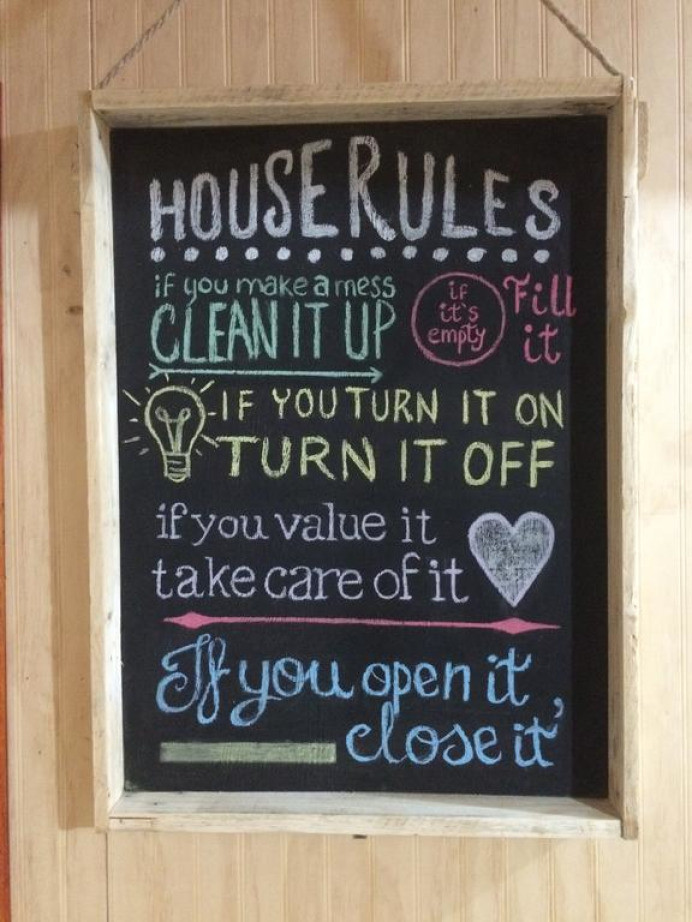 HOUSE RULES
if you make a mess
CLEAN IT UP
if
it's
empty
Fill
it
IF YOU TURN IT ON
TURN IT OFF
if you value it
take care of it
If you open it,
close it